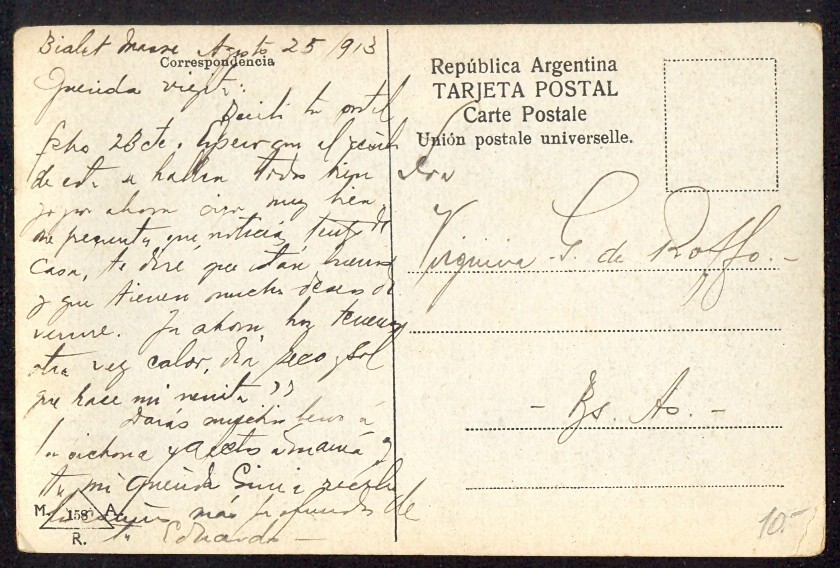 Bialet Masse Agosto 25/913
Correspondencia
Querida viejita:
Recibi tu postal
fcho 23 cte. Espero que al recibo
de esta se hallen todos bien
yo por ahora sigo muy bien,
me preguntas que noticias tengo de
casa, te diré que están buenos
y que tienen muchos deseos de
verme. Ya ahora hoy tenemos
otra vez calor, día seco y sol
que hace mi
Darás muchos besos á
la y afectos a mamá y
tu mi querida recibe
más profundos de
tu Eduardo
M. 158 A.
R.
República Argentina
TARJETA POSTAL
Carte Postale
Unión postale universelle.
Sra
Virginia G. de Roffo.-
- Bs. As. -
10.-